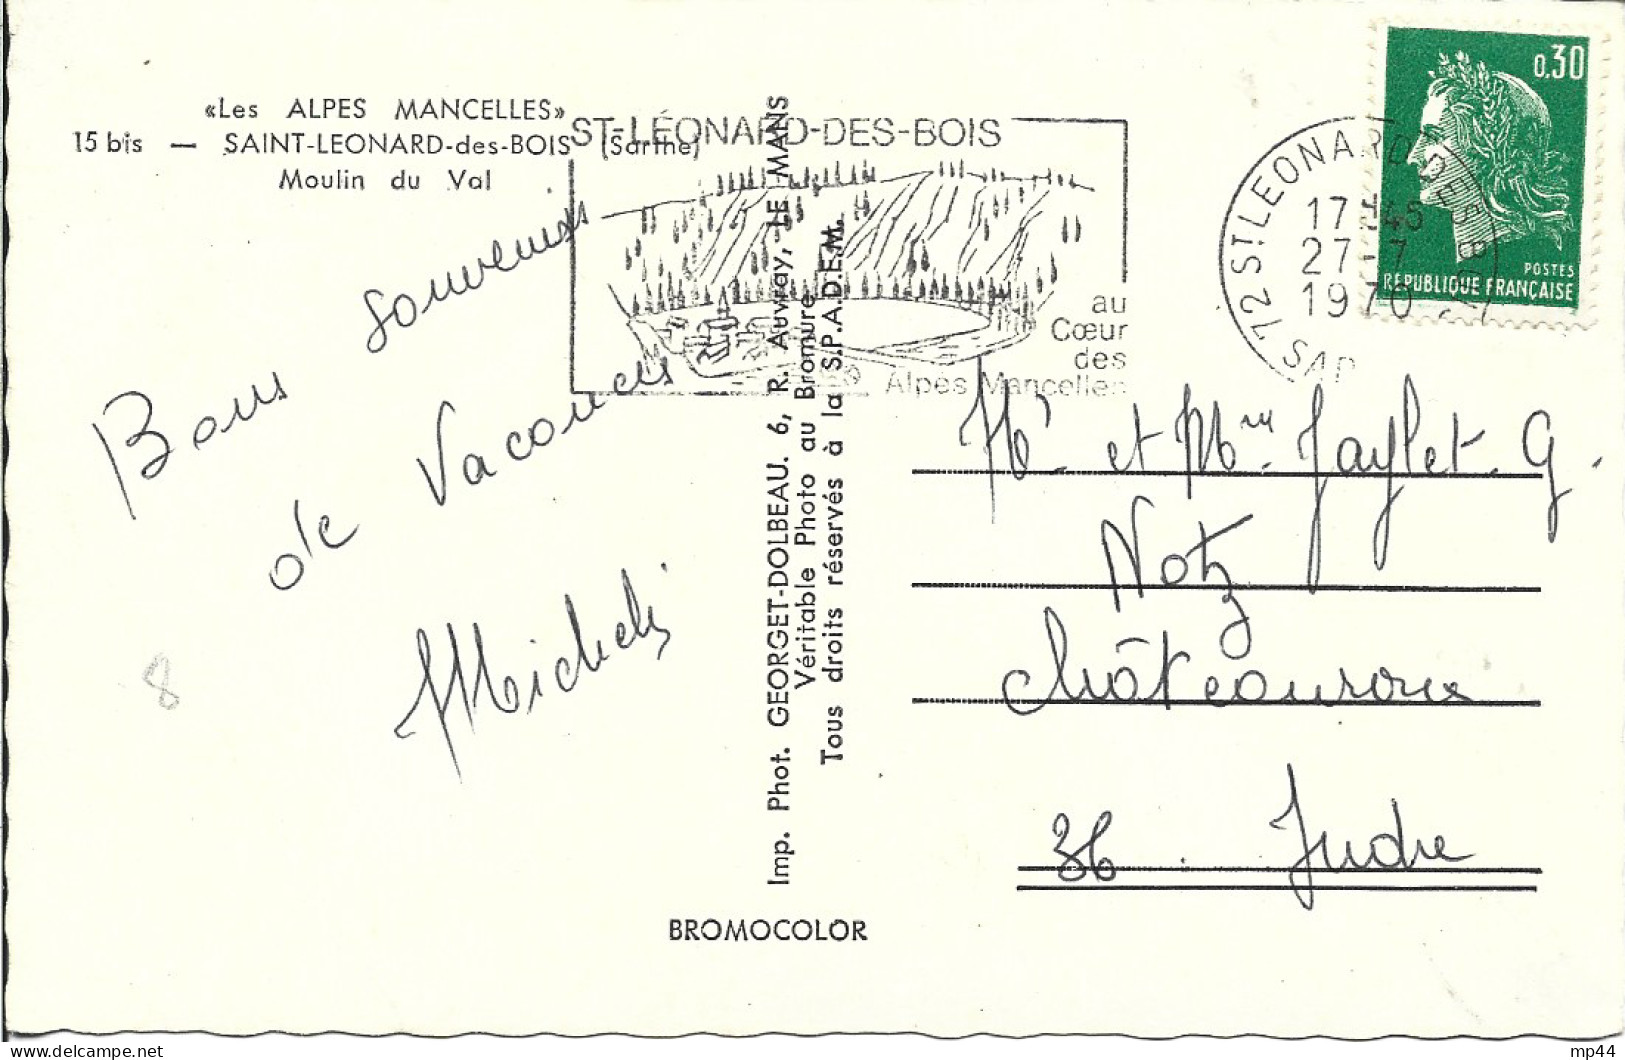 «Les ALPES MANCELLES»
15 bis — SAINT-LEONARD-des-BOIS (Sarthe)
Moulin du Val
Bons souvenirs
de Vacances
8
Imp. Phot. GEORGET-DOLBEAU. 6, R. Auvray, LE MANS
Véritable Photo au Bromure
Tous droits réservés à la S.P.A.D.E.M.
BROMOCOLOR
ST-LÉONARD-DES-BOIS
au
Cœur
des
Alpes Mancelles
72 ST LEONARD DES BOIS
17 H45
27-7
1970
SAR
0,30
POSTES
RÉPUBLIQUE FRANÇAISE
Mr et Mme Jaylet. G.
Notz
Châteauroux
36. Indre
Delcampe.net
mp44